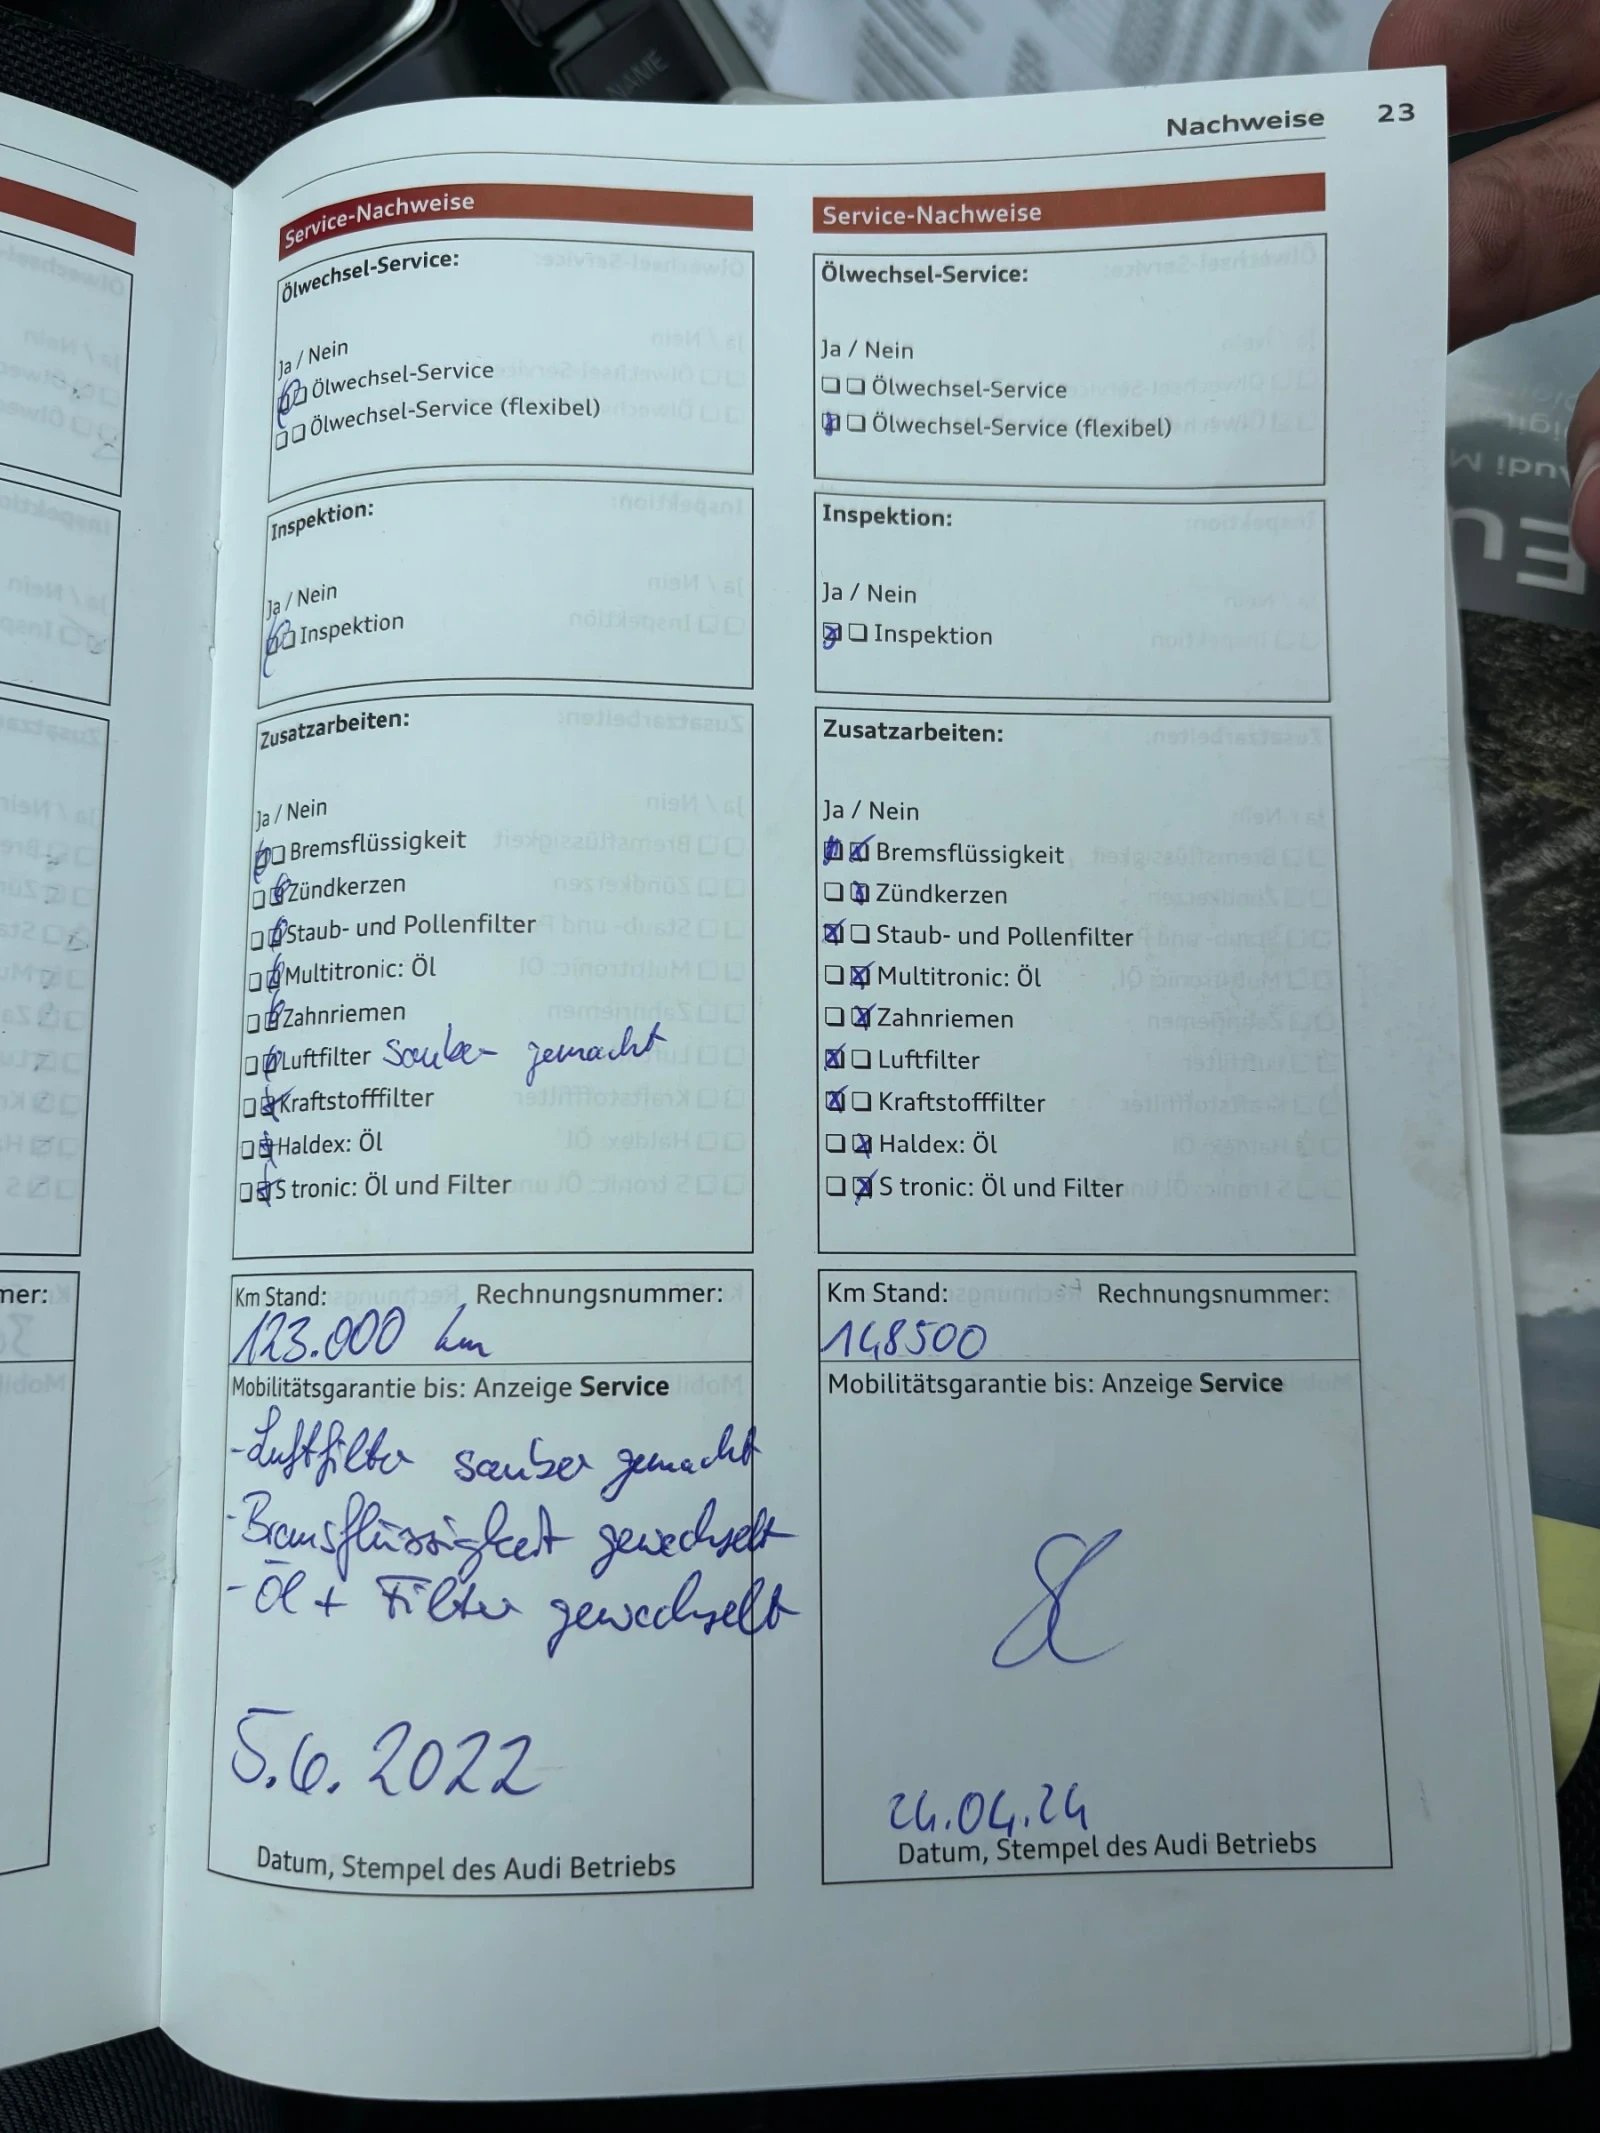 NAME
Nachweise 23
Service-Nachweise
Ölwechsel-Service:
Ja / Nein
Ölwechsel-Service
Ölwechsel-Service (flexibel)
Inspektion:
Ja / Nein
Inspektion
Zusatzarbeiten:
Ja / Nein
Bremsflüssigkeit
Zündkerzen
Staub- und Pollenfilter
Multitronic: Öl
Zahnriemen
Luftfilter sauber gemacht
Kraftstofffilter
Haldex: Öl
S tronic: Öl und Filter
Km Stand: Rechnungsnummer:
123.000 km
Mobilitätsgarantie bis: Anzeige Service
-Luftfilter sauber gemacht
-Bremsflüssigkeit gewechselt
- Öl + Filter gewechselt
5.6.2022
Datum, Stempel des Audi Betriebs
Service-Nachweise
Ölwechsel-Service:
Ja / Nein
Ölwechsel-Service
Ölwechsel-Service (flexibel)
Inspektion:
Ja / Nein
Inspektion
Zusatzarbeiten:
Ja / Nein
Bremsflüssigkeit
Zündkerzen
Staub- und Pollenfilter
Multitronic: Öl
Zahnriemen
Luftfilter
Kraftstofffilter
Haldex: Öl
S tronic: Öl und Filter
Km Stand: Rechnungsnummer:
148500
Mobilitätsgarantie bis: Anzeige Service
24.04.24
Datum, Stempel des Audi Betriebs